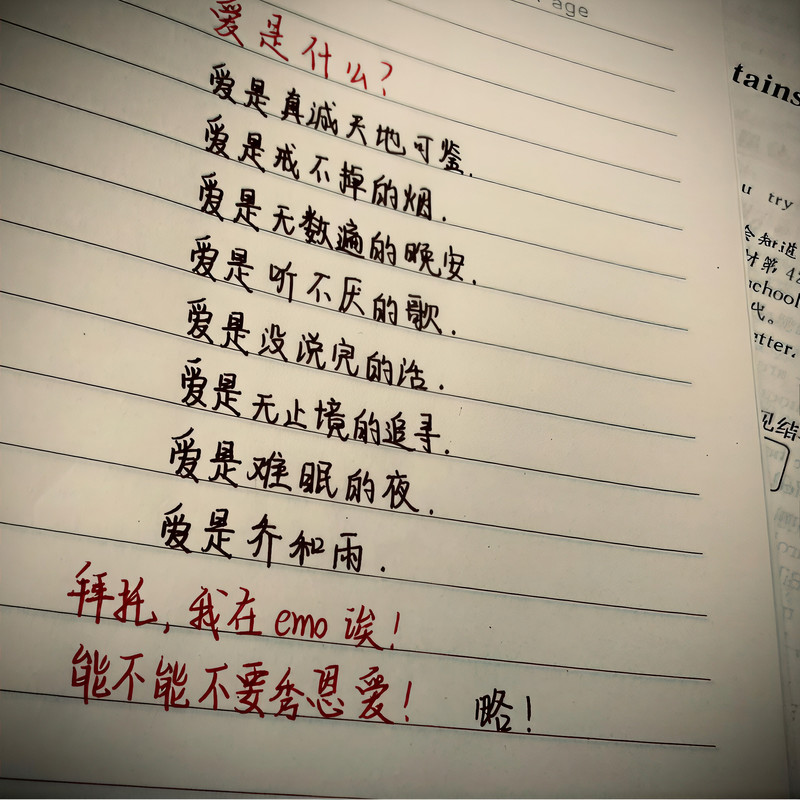 Page
爱是什么?
爱是真诚天地可鉴.
爱是戒不掉的烟.
爱是无数遍的晚安.
爱是听不厌的歌.
爱是没说完的话.
爱是无止境的追寻.
爱是难眠的夜.
爱是乔和雨.
拜托,我在emo诶!
能不能不要秀恩爱! 略!
tains
u try
会知道
材第 42
school
代。
atter.
见结